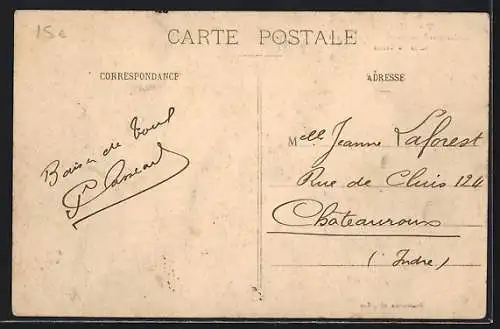 15e
CARTE POSTALE
CORRESPONDANCE
ADRESSE
Baiser de
Melle Jeanne Laforest
Rue de Cluis 124
Chateauroux
(Indre)